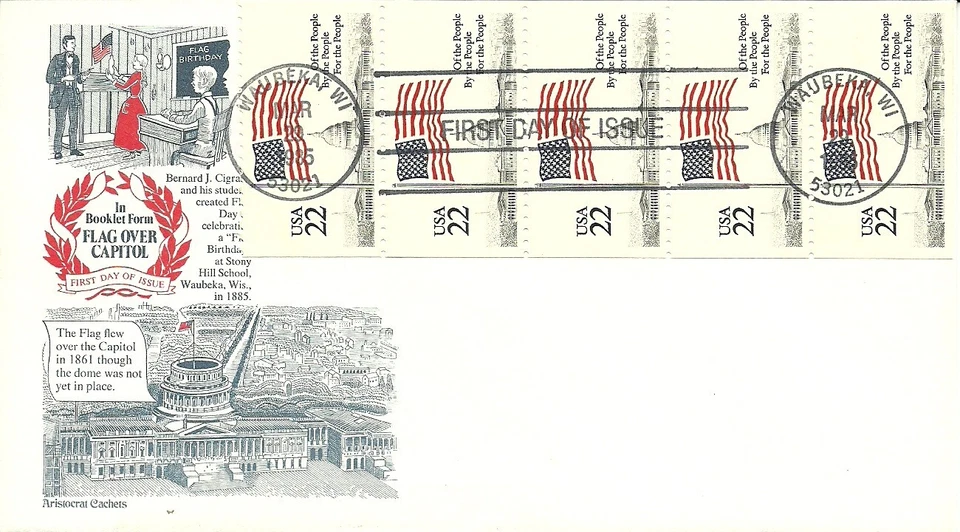 FLAG
BIRTHDAY
Bernard J.
and his
created
Day
celebrati
a
at Stony
Hill School,
Waubeka, Wis.,
in 1885.
In
Booklet Form
FLAG OVER
CAPITOL
FIRST DAY OF ISSUE
The Flag flew
over the Capitol
in 1861 though
the dome was not
yet in place.
Aristocrat Cachets
WAUBEKA, WI
MAR
1985
53021
FIRST DAY OF ISSUE
WAUBEKA, WI
MAR
53021
Of the People
By the People
For the People
USA
22
Of the People
By the People
For the People
USA
22
Of the People
By the People
For the People
USA
22
Of the People
By the People
For the People
USA
22
Of the People
By the People
For the People
USA
22